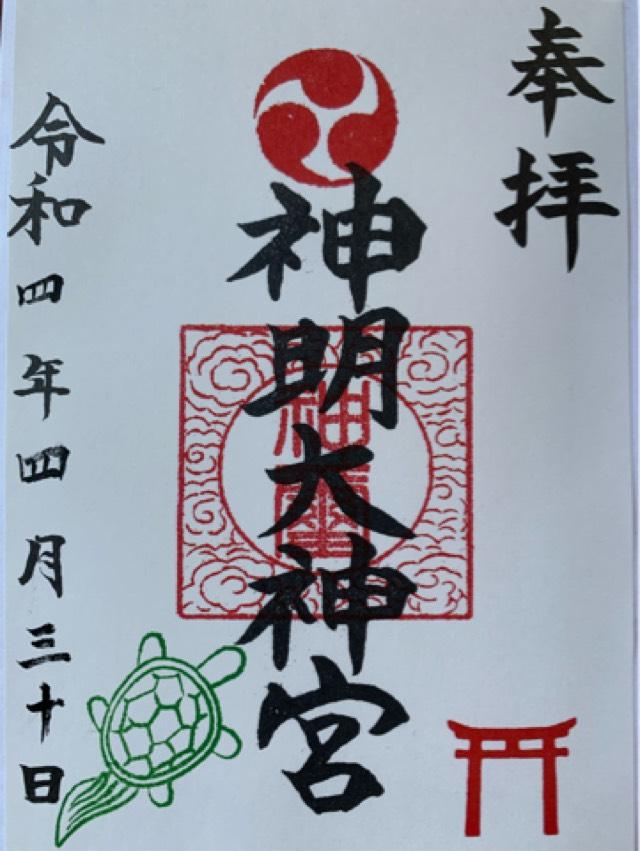 奉拝
神明大神宮
令和四年四月三十日